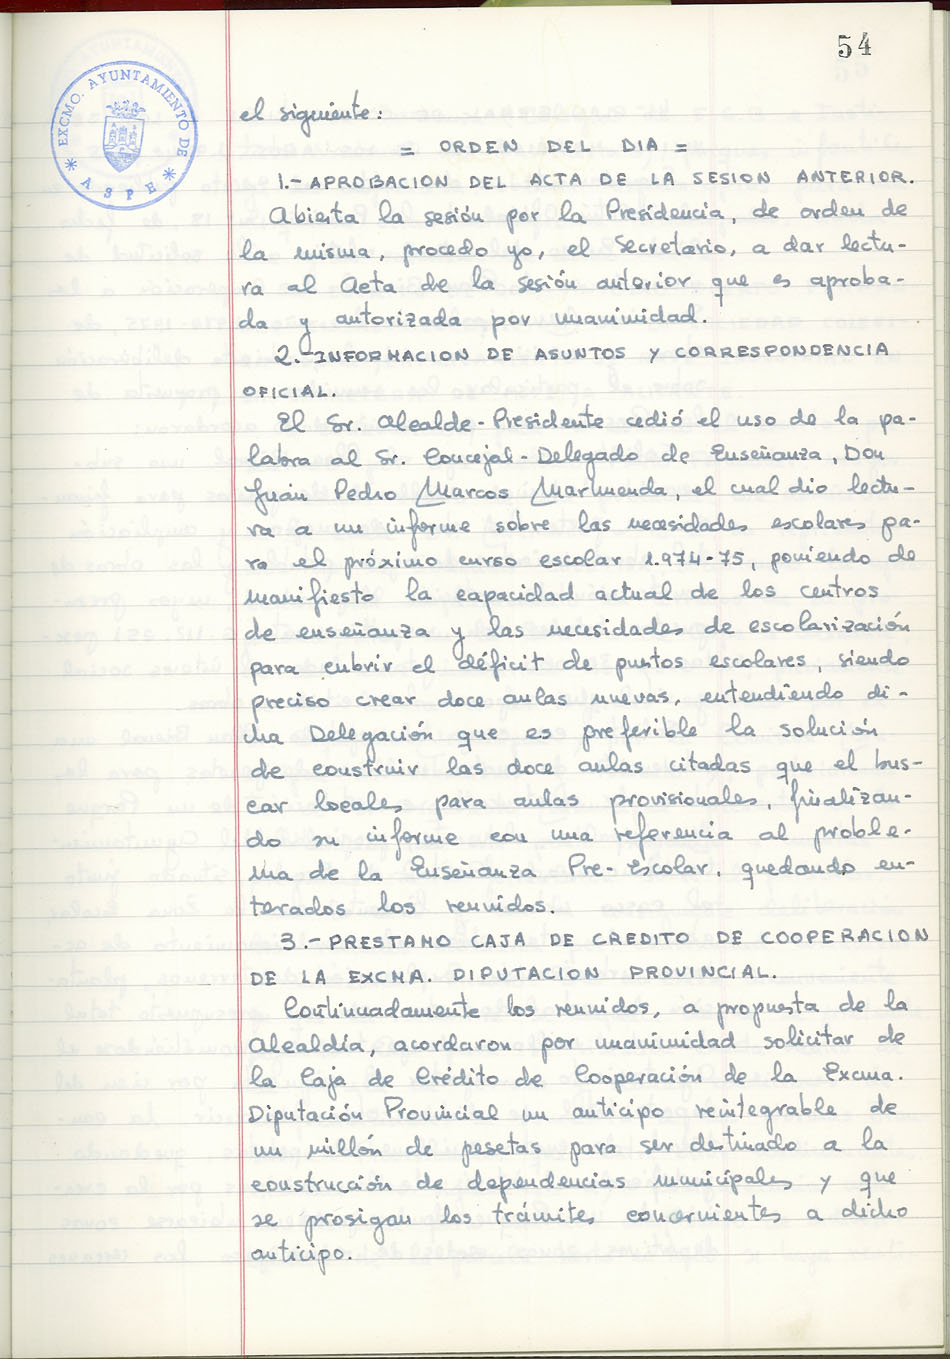 54
EXCMO. AYUNTAMIENTO DE
* ASPE *
el siguiente:
= ORDEN DEL DIA =
1.- APROBACION DEL ACTA DE LA SESION ANTERIOR.
Abierta la sesión por la Presidencia, de orden de
la misma, procedo yo, el Secretario, a dar lectu-
ra al Acta de la sesión anterior que es aproba-
da y autorizada por unanimidad.
2.- INFORMACION DE ASUNTOS Y CORRESPONDENCIA
OFICIAL.
El Sr. Alcalde-Presidente cedió el uso de la pa-
labra al Sr. Concejal-Delegado de Enseñanza, Don
Juan Pedro Marcos Marmenda, el cual dio lectu-
ra a un informe sobre las necesidades escolares pa-
ra el próximo curso escolar 1.974-75, poniendo de
manifiesto la capacidad actual de los centros
de enseñanza y las necesidades de escolarización
para cubrir el déficit de puestos escolares, siendo
preciso crear doce aulas nuevas, entendiendo di-
cha Delegación que es preferible la solución
de construir las doce aulas citadas que el bus-
car locales para aulas provisionales, finalizan-
do su informe con una referencia al proble-
ma de la Enseñanza Pre-Escolar, quedando en-
terados los reunidos.
3.- PRESTAMO CAJA DE CREDITO DE COOPERACION
DE LA EXCMA. DIPUTACION PROVINCIAL.
Continuadamente los reunidos, a propuesta de la
Alcaldía, acordaron por unanimidad solicitar de
la Caja de Crédito de Cooperación de la Excma.
Diputación Provincial un anticipo reintegrable de
un millón de pesetas para ser destinado a la
construcción de dependencias municipales y que
se prosigan los trámites concernientes a dicho
anticipo.